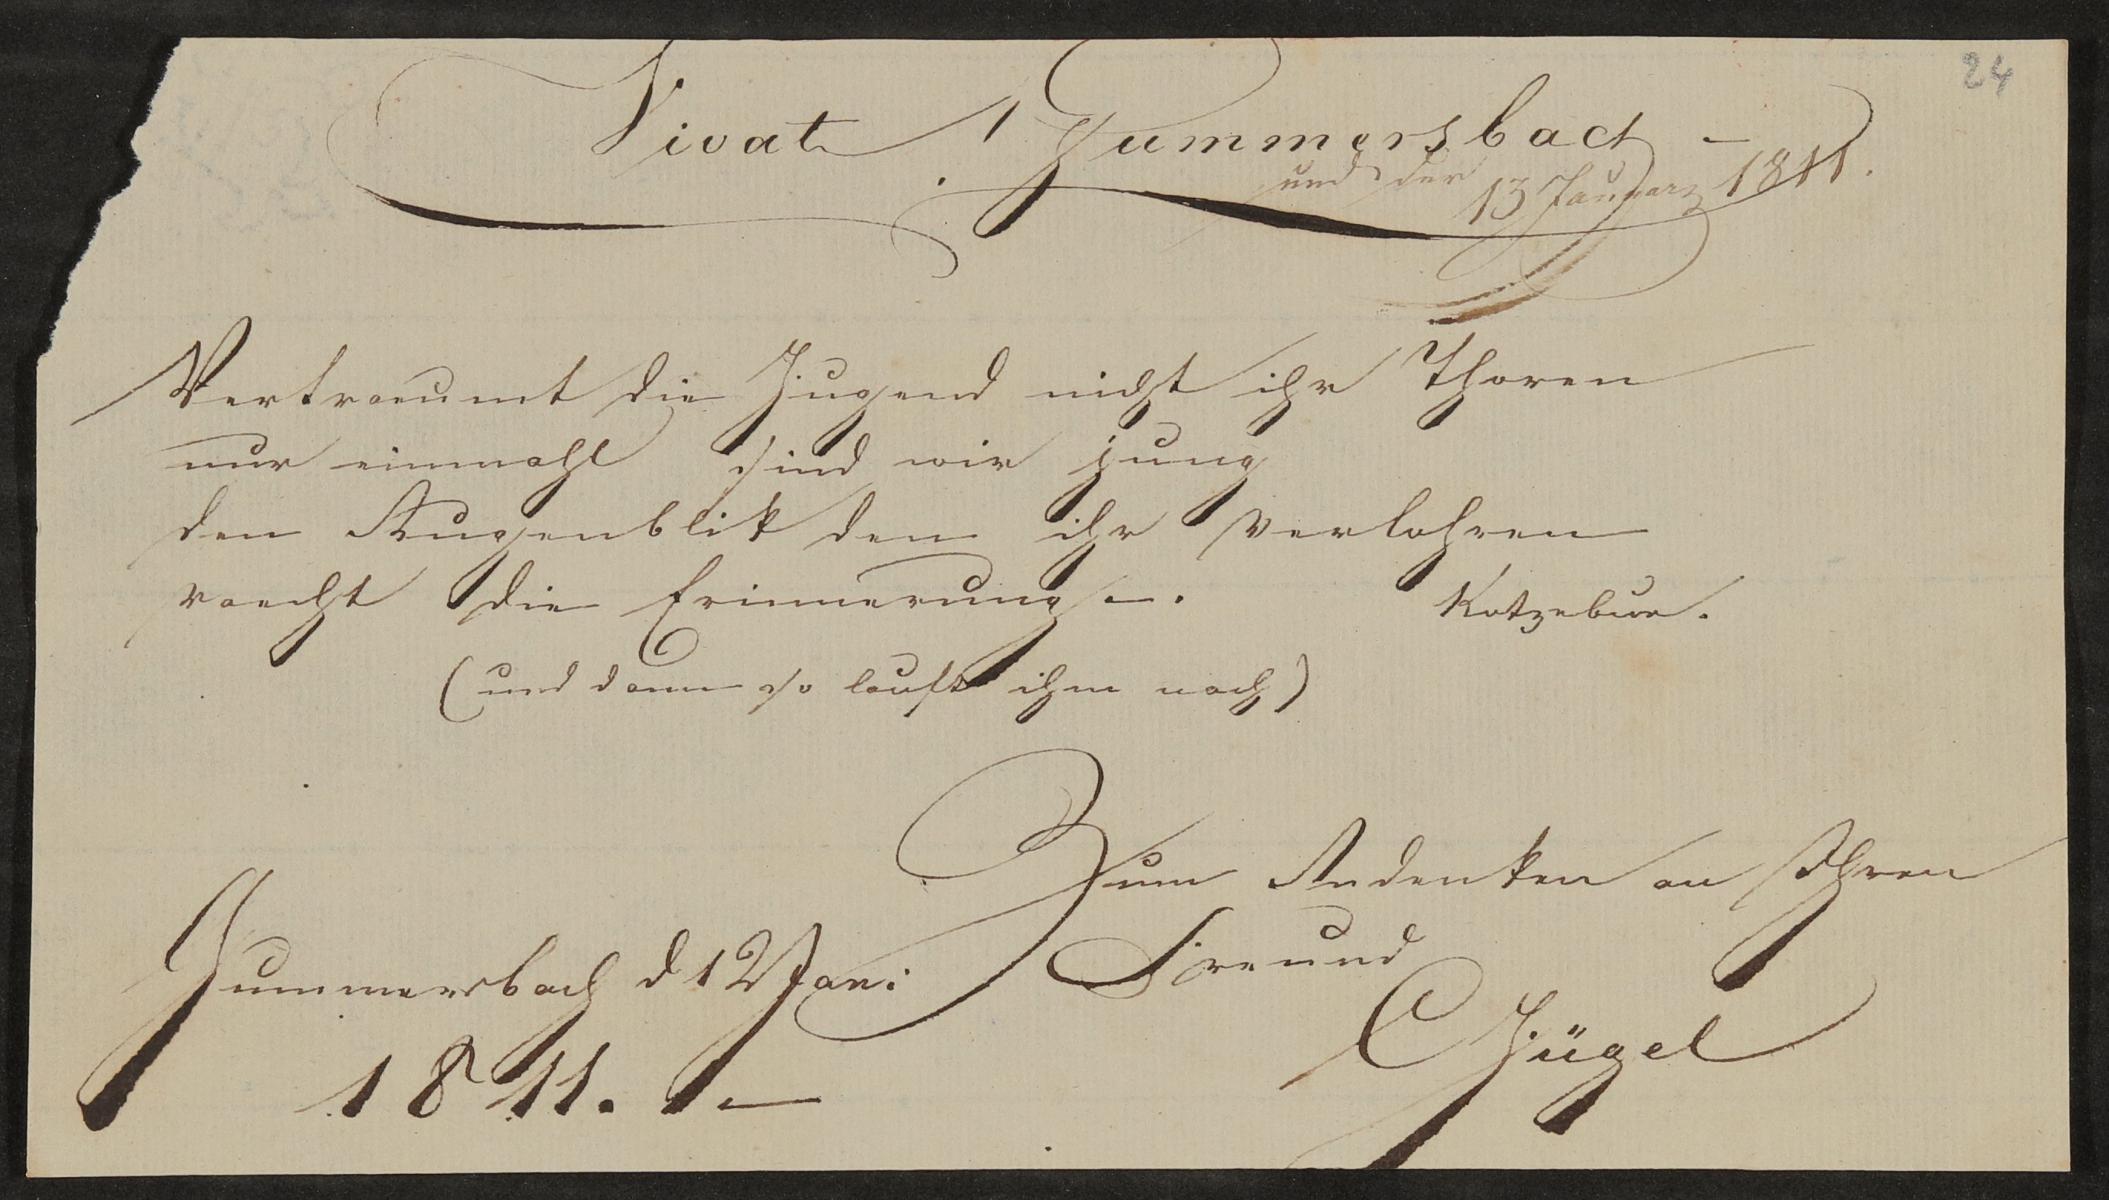 24
Vivat Gummersbach –
und der 13 Januarz 1811.
Vertraeumt die Jugend nicht ihr Thoren
nur einmahl sind wir jung
den Augenblik den ihr verlohren
raecht die Erinnerung –.
Kotzebue.
(und dann so lauft ihm nach)
Zum Andenken an Ihren
Freund
Gummersbach d 12 Jan:
CJügel
1811. –